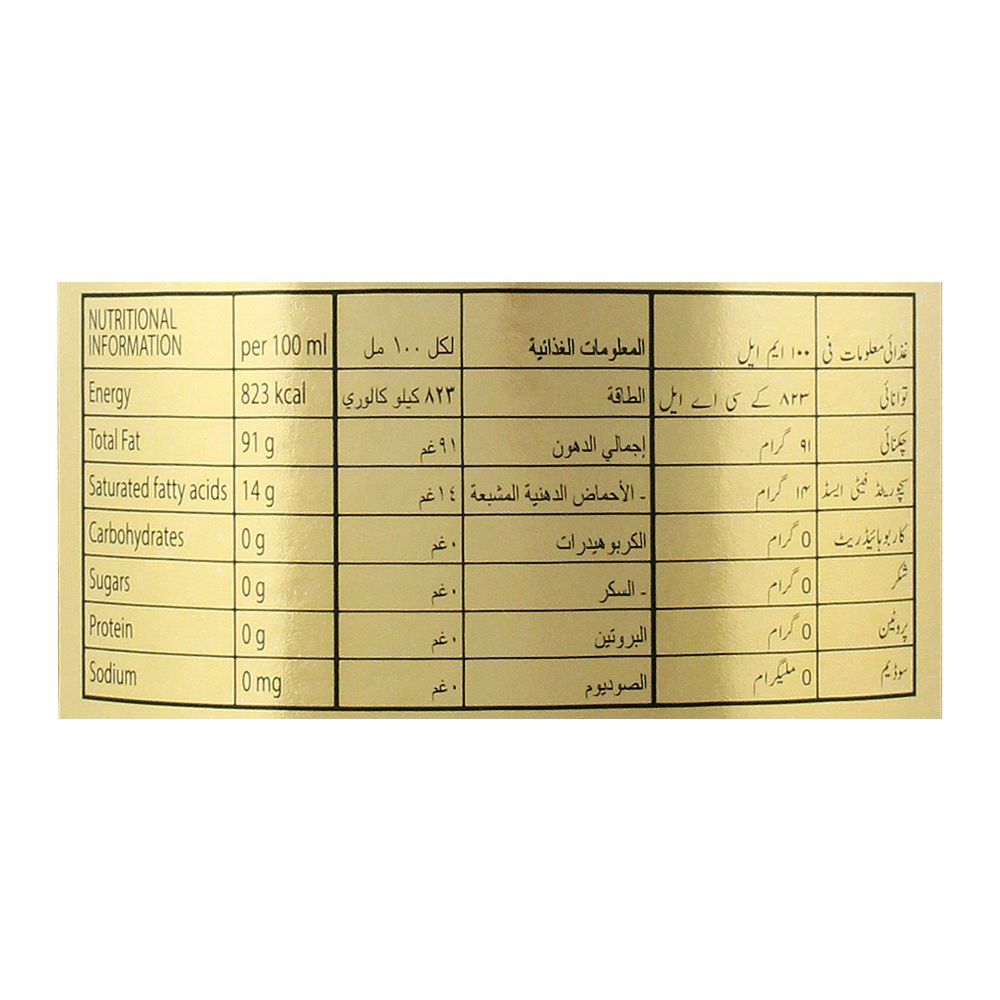 NUTRITIONAL
INFORMATION per 100 ml لكل ١٠٠ مل المعلومات الغذائية ۱۰۰ ایم ایل غذائی معلومات فی
Energy 823 kcal ٨٢٣ كيلو كالوري الطاقة ۸۲۳ کے سی اے ایل توانائی
Total Fat 91 g ٩١غم إجمالي الدهون ۹۱ گرام چکنائی
Saturated fatty acids 14 g ١٤غم - الأحماض الدهنية المشبعة ۱۴ گرام سچوریٹڈ فیٹی ایسڈ
Carbohydrates 0 g ٠غم الكربوهيدرات 0 گرام کاربوہائیڈریٹ
Sugars 0 g ٠غم - السكر 0 گرام شکر
Protein 0 g ٠غم البروتين 0 گرام پروٹین
Sodium 0 mg ٠غم الصوديوم 0 ملیگرام سوڈیم